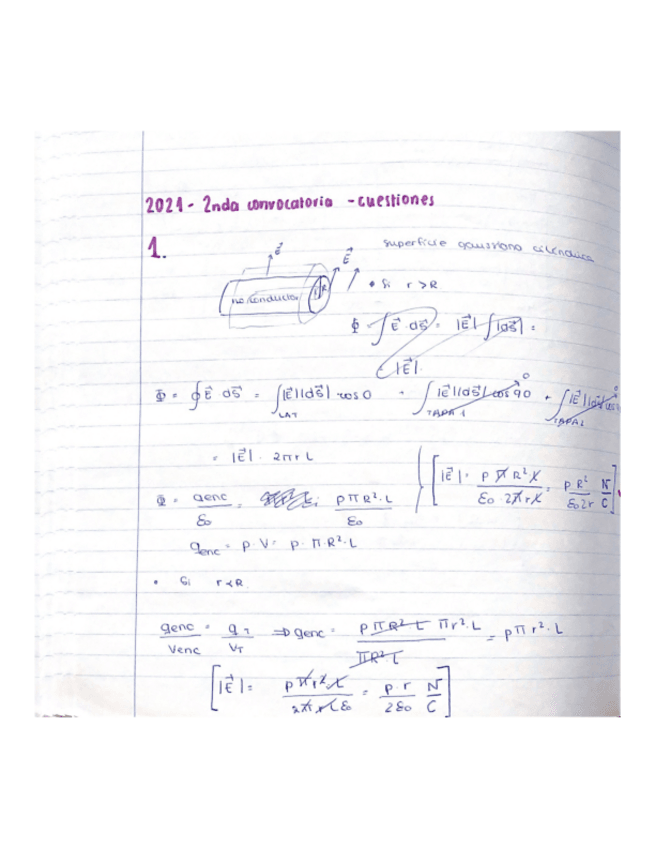 2021 - 2nda convocatoria - cuestiones
1.
superficie gaussiana cilíndrica
E⃗
E⃗
no conductor
R
• Si r > R
Φ = ∫ E⃗ · dS⃗ = |E⃗| ∫ |dS⃗| =
= |E⃗| ·
Φ = ∮ E⃗ dS⃗ = ∫ |E⃗||dS⃗| cos 0 + ∫ |E⃗||dS⃗| cos 90 0 + ∫ |E⃗||dS⃗| cos
LAT TAPA 1 TAPA 2
= |E⃗| · 2πrL
[ |E⃗| = ρ π R² L / ε₀ · 2π r L = ρ R² / ε₀ 2r N/C ]
Φ = qenc / ε₀ = ρπR²·L / ε₀
qenc = ρ · V = ρ · π · R² · L
• Si r < R
qenc / Venc = qT / VT ⇒ qenc = ρ π R² L πr² · L / πR² · L = ρπ r² · L
[ |E⃗| = ρ π r² L / 2π r L ε₀ = ρ · r / 2ε₀ N/C ]